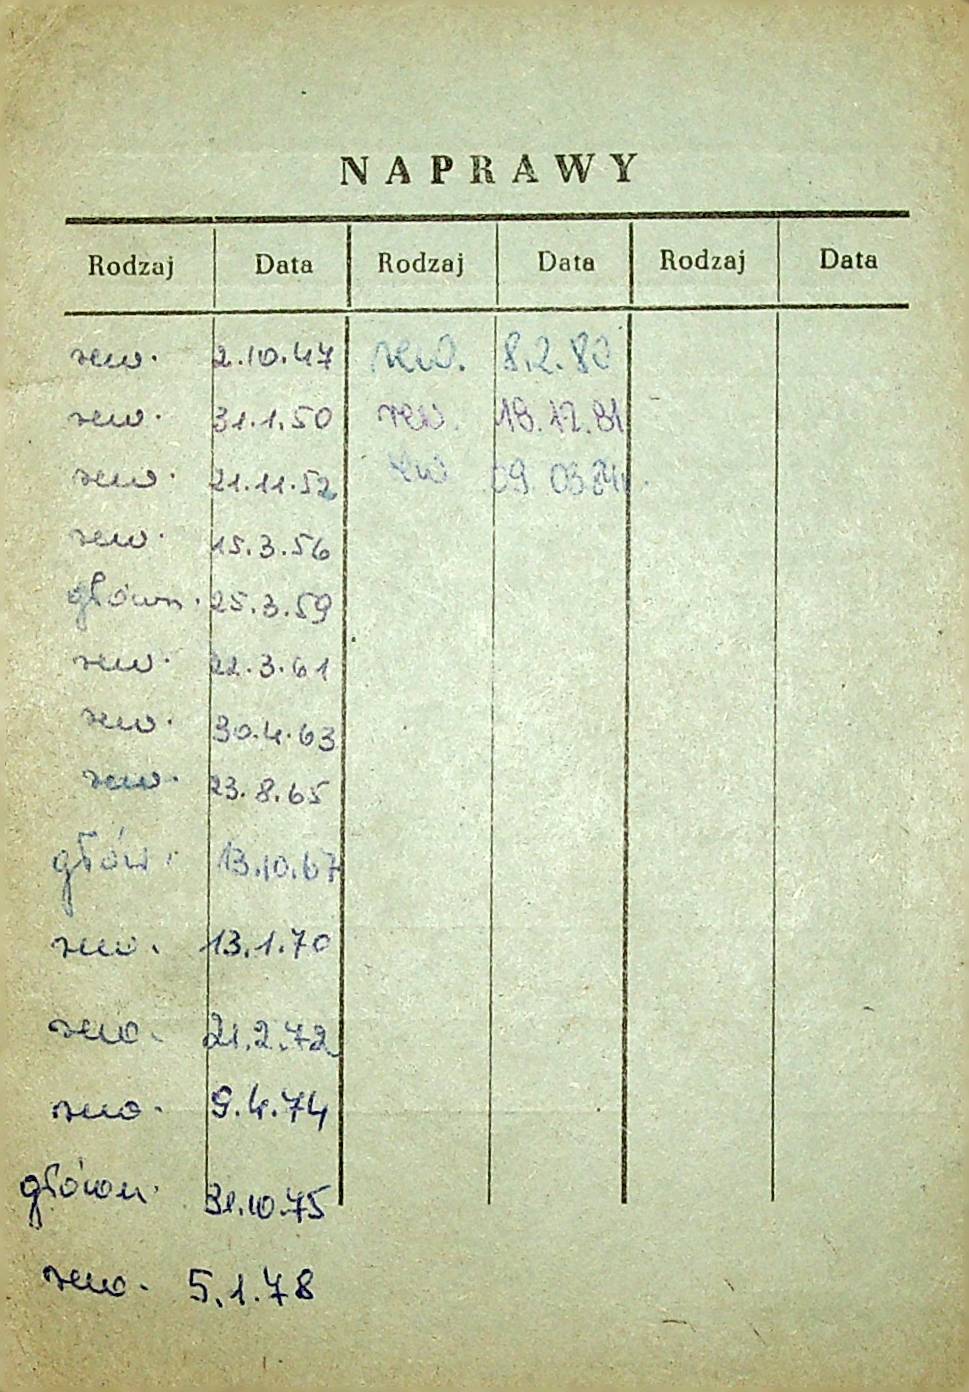 NAPRAWY
Rodzaj Data Rodzaj Data Rodzaj Data
rew. 2.10.47 rew. 8.2.80
rew. 31.1.50 rew. 18.12.81
rew. 21.11.52 rew 09.03.84
rew. 15.3.56
główn. 25.3.59
rew. 22.3.61
rew. 30.4.63
rew. 23.8.65
głów. 13.10.67
rew. 13.1.70
rew. 21.2.72
rew. 9.4.74
główn. 31.10.75
rew. 5.1.78